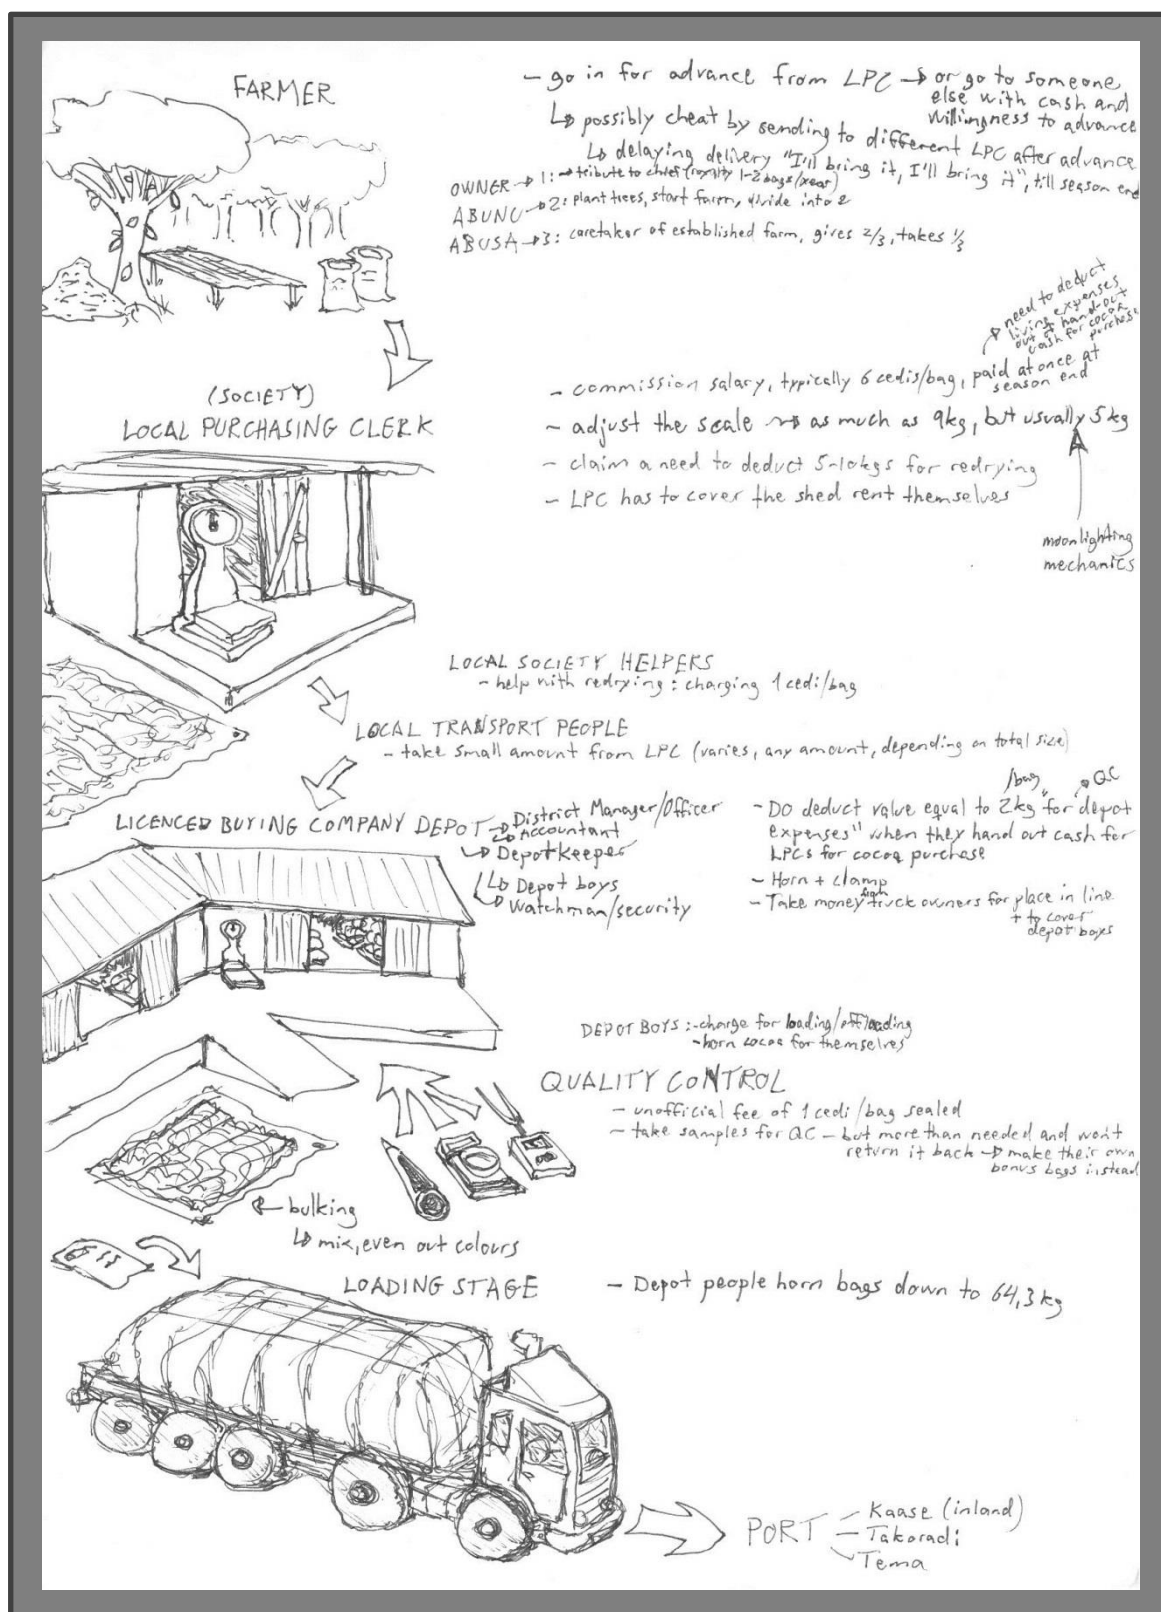 FARMER
- go in for advance from LPC → or go to someone
else with cash and
willingness to advance
↳ possibly cheat by sending to different LPC after advance
↳ delaying delivery "I'll bring it, I'll bring it", till season end
OWNER → 1: → tribute to chief (royalty 1-2 bags/year)
ABUNU → 2: plant trees, start farm, divide into 2
ABUSA → 3: caretaker of established farm, gives 2/3, takes 1/3
need to deduct
living expenses
out of hand-out
cash for cocoa
purchase
(SOCIETY)
LOCAL PURCHASING CLERK
- commission salary, typically 6 cedis/bag, paid at once at
season end
- adjust the scale → as much as 9kg, but usually 5kg
- claim a need to deduct 5-10kgs for redrying
- LPC has to cover the shed rent themselves
moonlighting
mechanics
LOCAL SOCIETY HELPERS
- help with redrying: charging 1 cedi/bag
LOCAL TRANSPORT PEOPLE
- take small amount from LPC (varies, any amount, depending on total size)
LICENCED BUYING COMPANY DEPOT → District Manager/Officer
↳ Accountant
↳ Depotkeeper
↳ Depot boys
↳ Watchman/security
/bag → QC
- Do deduct value equal to 2kg "for depot
expenses" when they hand out cash for
LPCs for cocoa purchase
- Horn + clamp
- Take money from truck owners for place in line
+ to cover
depot boys
DEPOT BOYS: - charge for loading/offloading
- horn cocoa for themselves
QUALITY CONTROL
- unofficial fee of 1 cedi/bag sealed
- take samples for QC - but more than needed and won't
return it back → make their own
bonus bags instead
← bulking
↳ mix, even out colours
LOADING STAGE
- Depot people horn bags down to 64,3 kg
PORT
Kaase (inland)
Takoradi
Tema